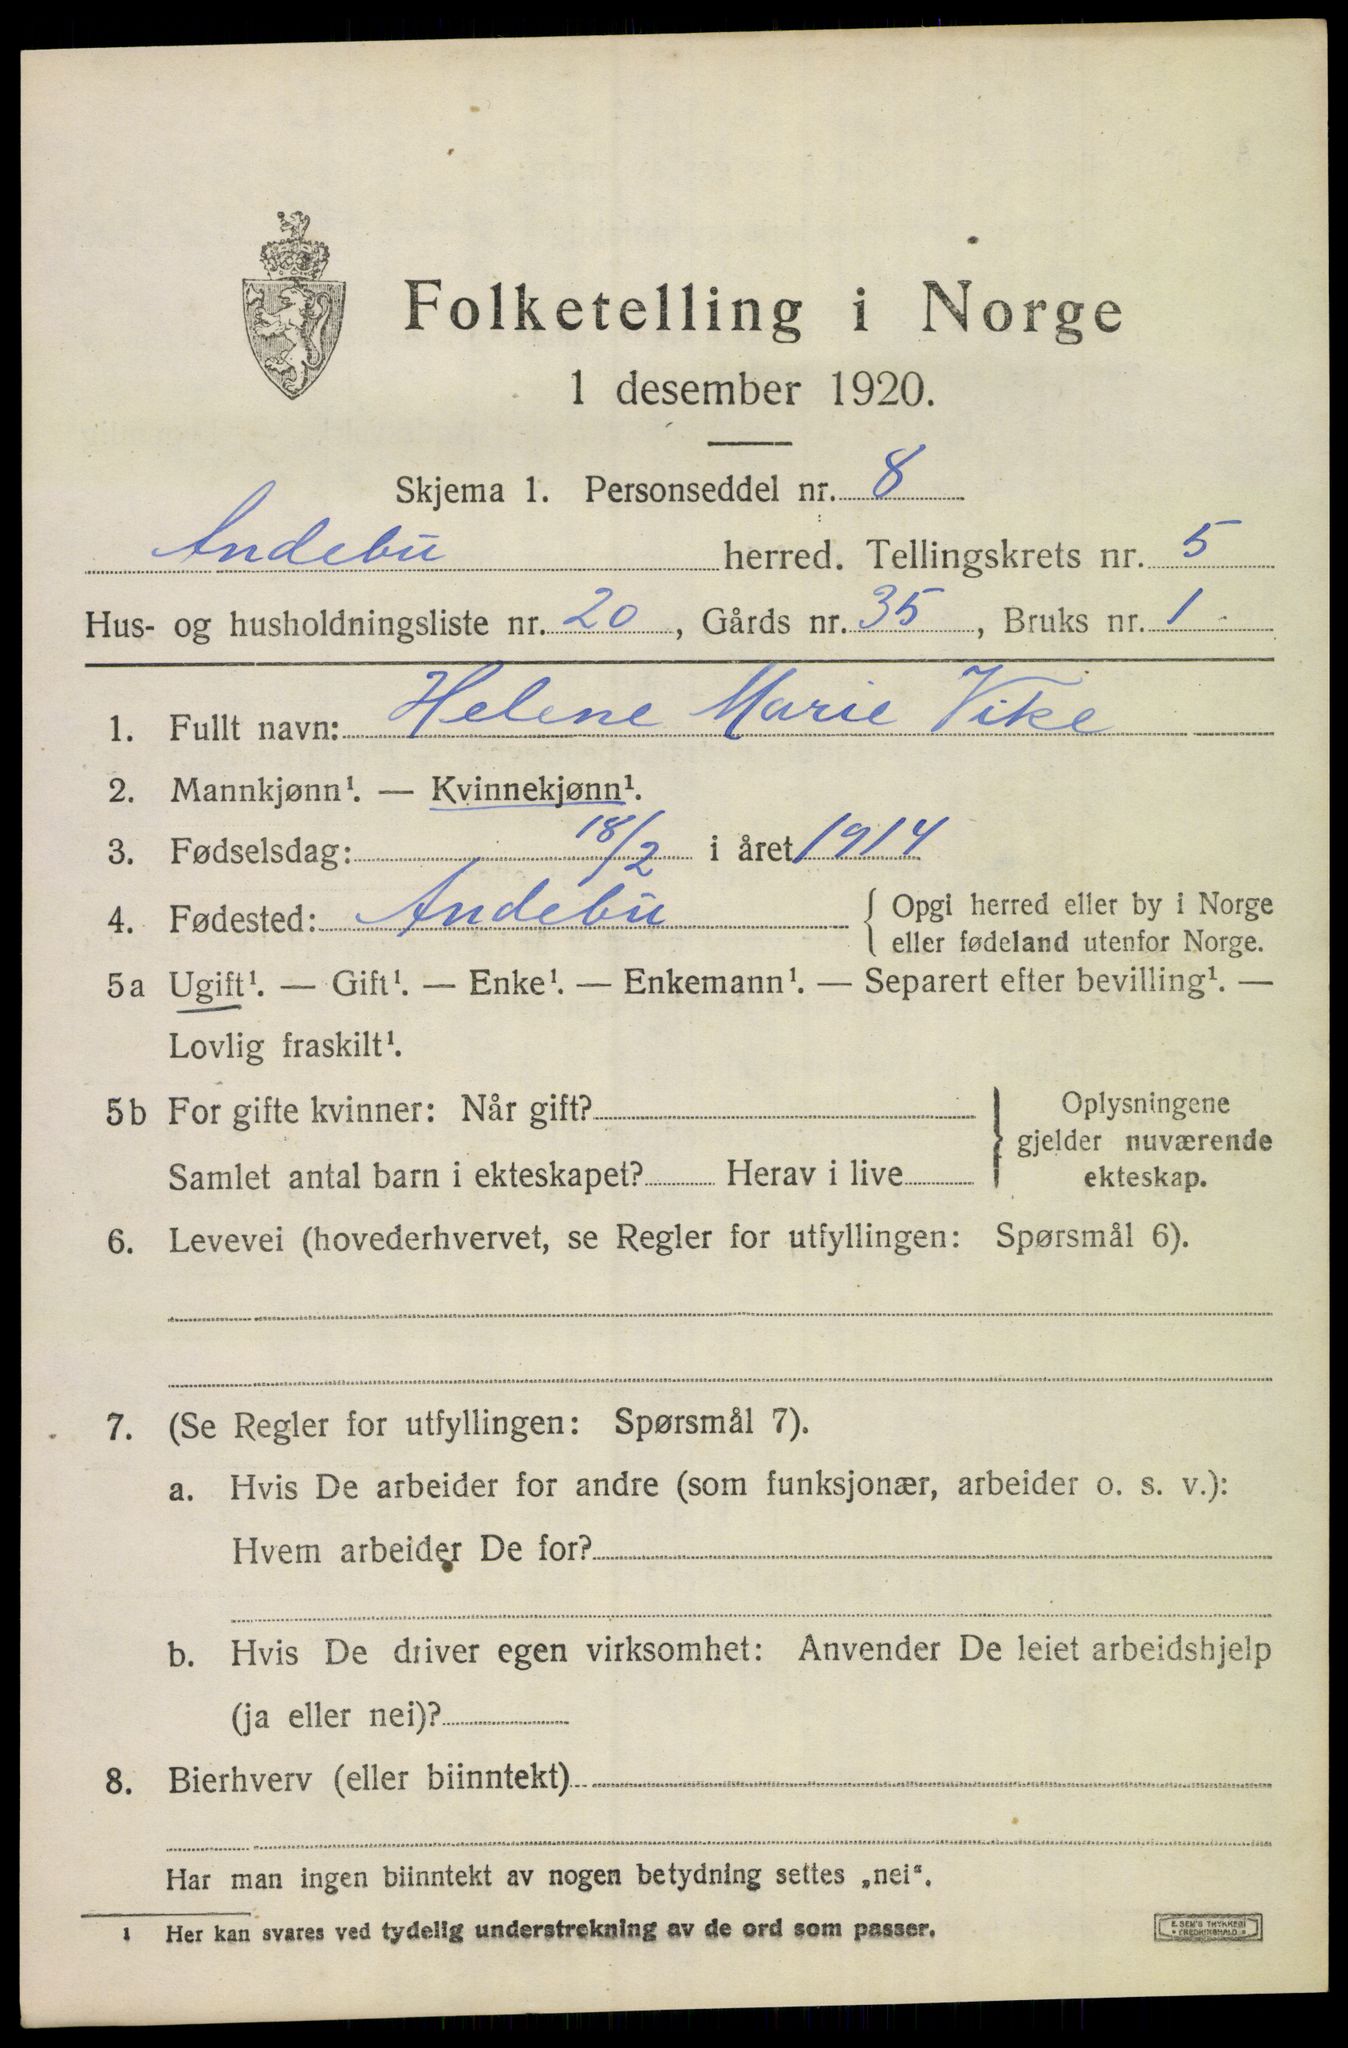 Folketelling i Norge
1 desember 1920.
Skjema 1. Personseddel nr. 8
Andebu herred. Tellingskrets nr. 5
Hus- og husholdningsliste nr. 20, Gårds nr. 35, Bruks nr. 1
1. Fullt navn: Helene Marie Vike
2. Mannkjønn¹. — Kvinnekjønn¹.
3. Fødselsdag: 18/2 i året 1914
4. Fødested: Andebu { Opgi herred eller by i Norge
eller fødeland utenfor Norge.
5a Ugift¹. — Gift¹. — Enke¹. — Enkemann¹. — Separert efter bevilling¹. —
Lovlig fraskilt¹.
5b For gifte kvinner: Når gift? } Oplysningene
gjelder nuværende
Samlet antal barn i ekteskapet? Herav i live ekteskap.
6. Levevei (hovederhvervet, se Regler for utfyllingen: Spørsmål 6).
7. (Se Regler for utfyllingen: Spørsmål 7).
a. Hvis De arbeider for andre (som funksjonær, arbeider o. s. v.):
Hvem arbeider De for?
b. Hvis De driver egen virksomhet: Anvender De leiet arbeidshjelp
(ja eller nei)?
8. Bierhverv (eller biinntekt)
Har man ingen biinntekt av nogen betydning settes „nei“.
1 Her kan svares ved tydelig understrekning av de ord som passer.
E. SEM'S TRYKKERI
FREDRIKSHALD